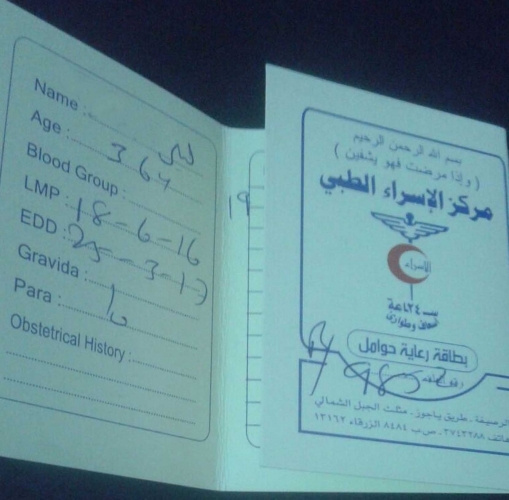 Name :
Age : 36 y
Blood Group :
LMP : 18-6-16
EDD : 25-3-17
Gravida :
Para :
Obstetrical History :
19
بسم الله الرحمن الرحيم
( وإذا مرضت فهو يشفين )
مركز الإسراء الطبي
الأسراء
٢٤ساعة
بطاقة رعاية حوامل
الرصيفة - طريق ياجوز - مثلث الجبل الشمالي
هاتف ٣٧٤٣٢٨٨ - ص.ب ٨٤٨٤ الزرقاء ١٣١٦٢